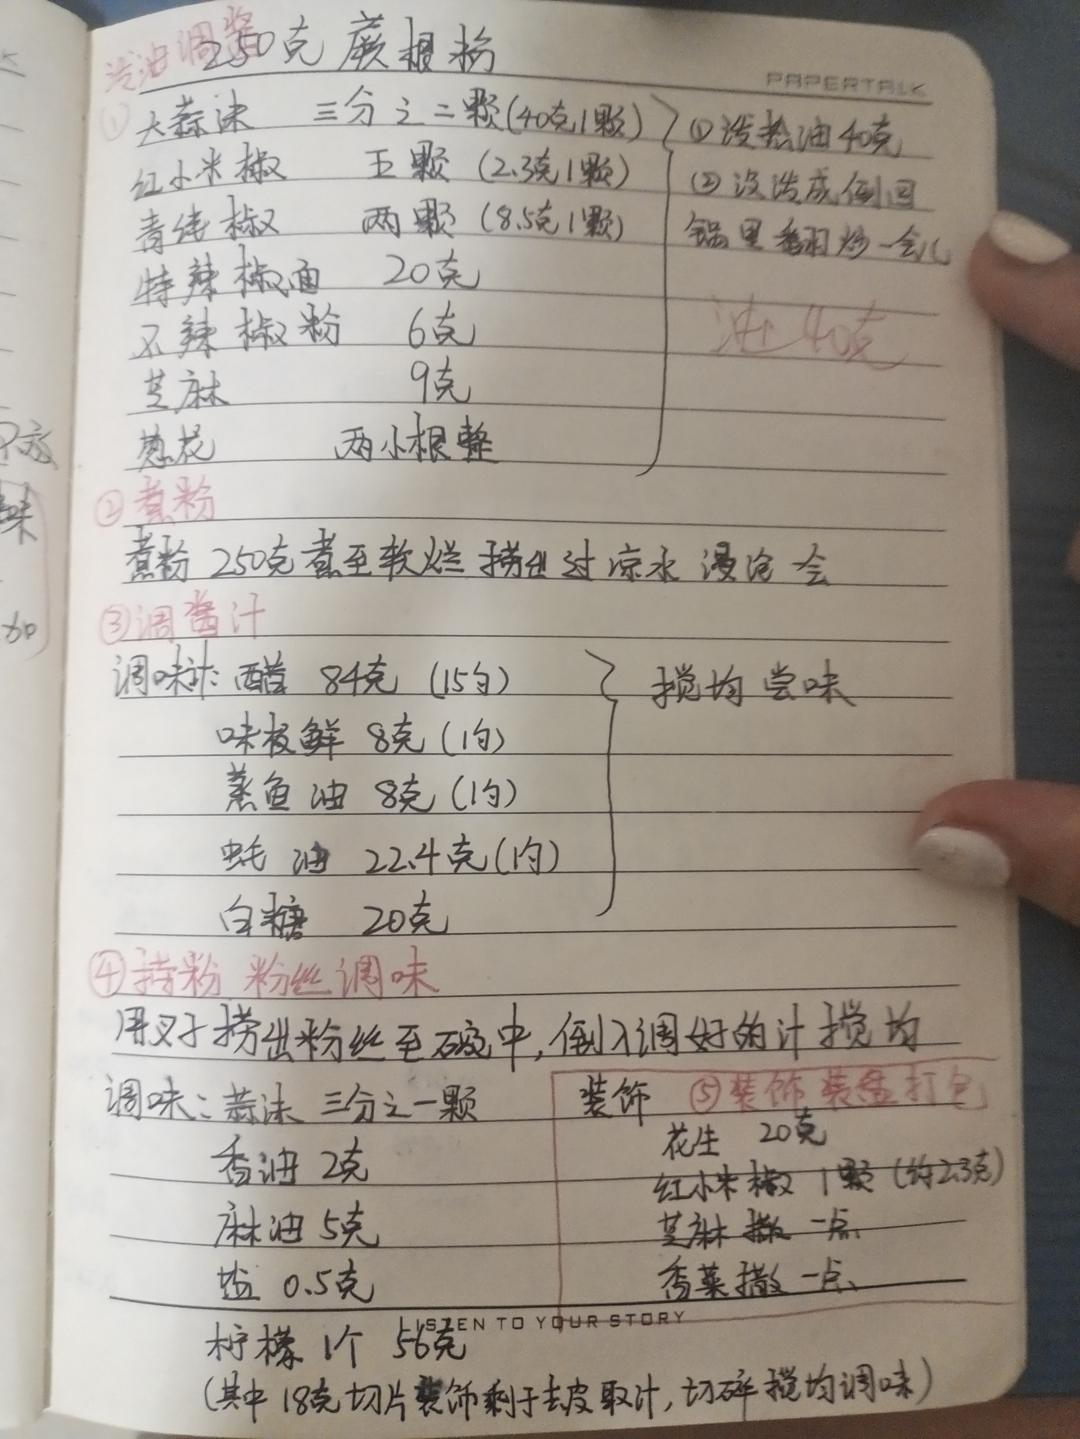 250克 蕨根粉
泼油调酱
PAPERTALK
① 大蒜沫 三分之二颗(40克1颗)
红小米椒 五颗 (2.3克1颗)
青线椒 两颗 (8.5克1颗)
特辣椒面 20克
不辣椒粉 6克
芝麻 9克
葱花 两小根整
① 泼热油40克
② 没泼成倒回
锅里翻炒一会儿
油 40克
② 煮粉
煮粉 250克煮至软烂 捞出过凉水 浸泡 会
③调酱汁
调味汁: 醋 84克 (15勺)
味极鲜 8克 (1勺)
蒸鱼油 8克 (1勺)
蚝油 22.4克(1勺)
白糖 20克
搅均 尝味
④捞粉 粉丝调味
用叉子捞出粉丝至碗中,倒入调好的汁搅均
调味: 蒜沫 三分之一颗
香油 2克
麻油 5克
盐 0.5克
柠檬 1个 56克
(其中18克切片装饰剩于去皮取汁,切碎搅均调味)
装饰 ⑤装饰 装盒打包
花生 20克
红小米椒 1颗 (约2.3克)
芝麻撒一点
香菜撒一点
LISTEN TO YOUR STORY
味